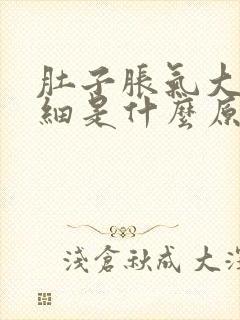 肚子脹氣大
細是什麼原
淺倉秋成 大深